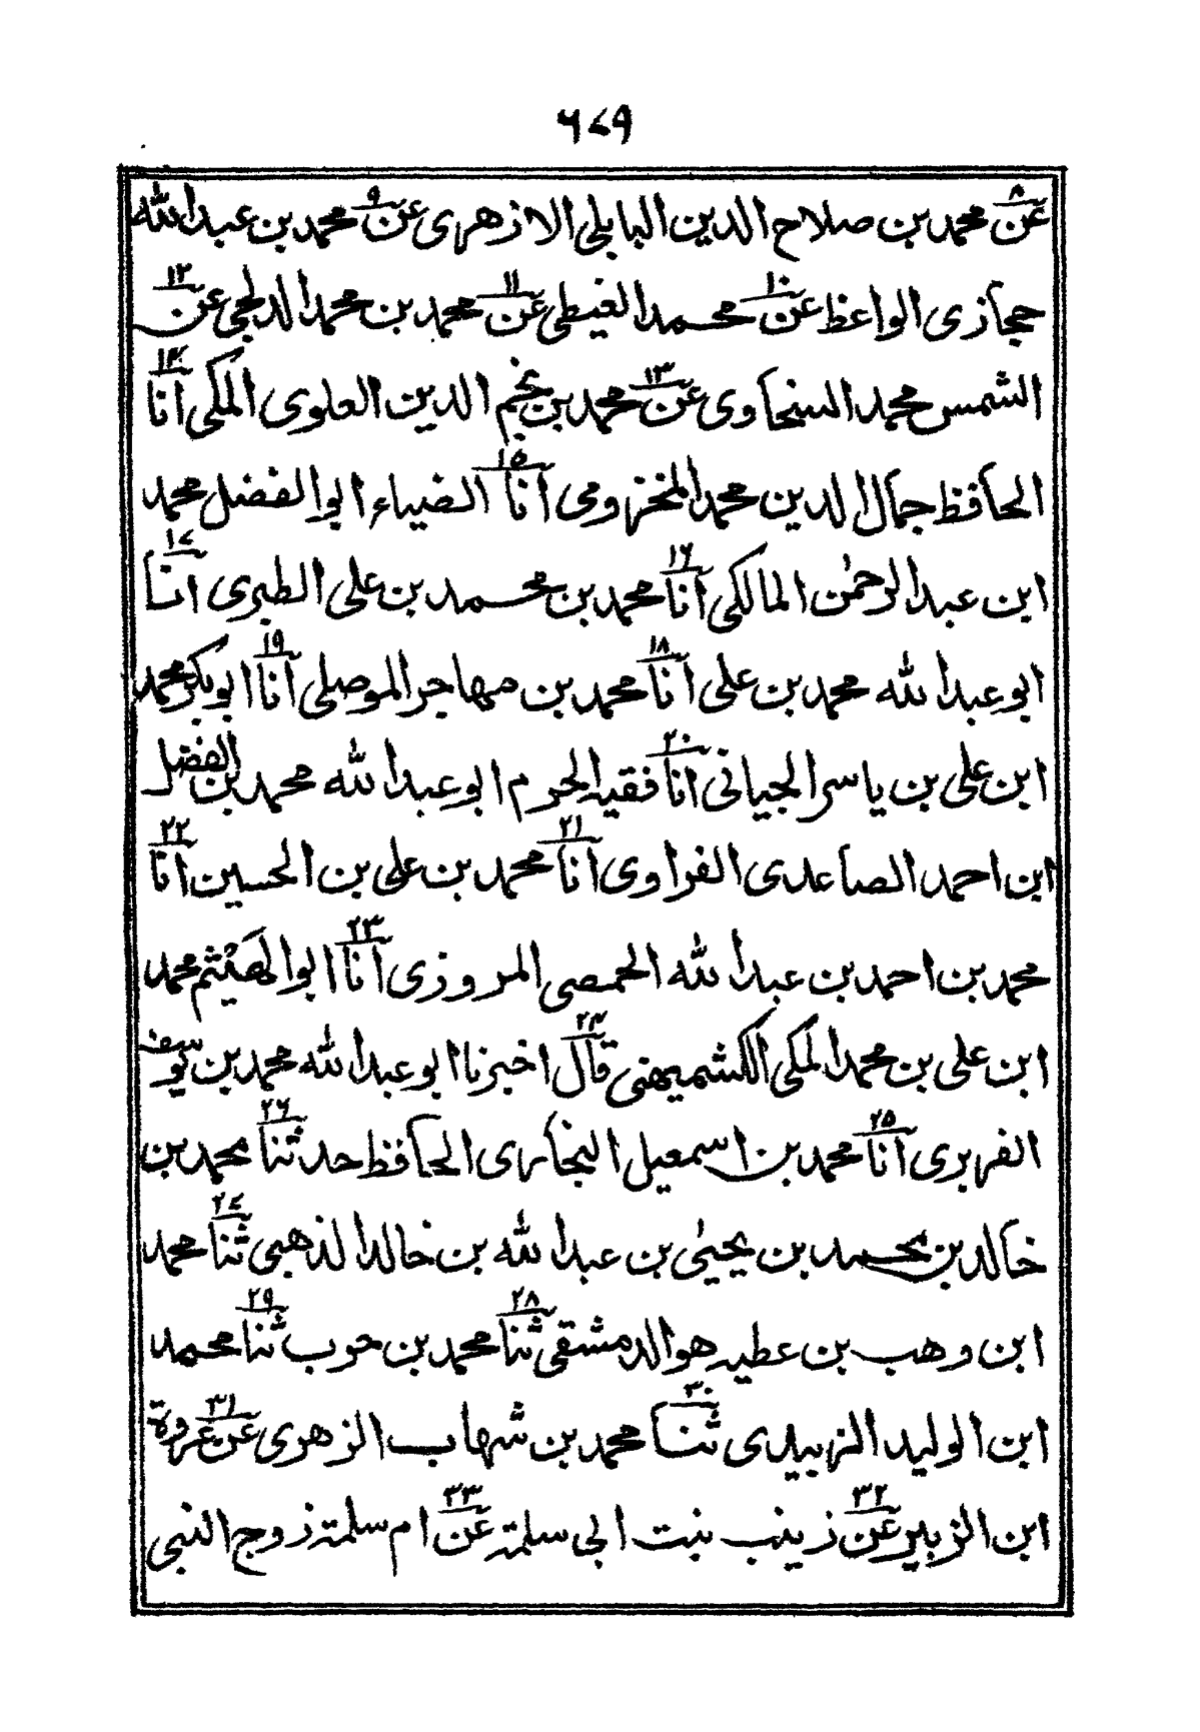 ٦٧٩
عن٨ محمد بن صلاح الدين البابلي الازهرى عن٩ محمد بن عبد الله
حجازى الواعظ عن١٠ محمد الغيطى عن١١ محمد بن محمد الدلجى عن١٢
الشمس محمد السخاوى عن١٣ محمد بن نجم الدين العلوى المكى انا١٤
الحافظ جمال الدين محمد المخزومى انا١٥ الضياء ابو الفضل محمد
ابن عبد الرحمٰن المالكى انا١٦ محمد بن محمد بن على الطبرى انا١٧
ابو عبد الله محمد بن على انا١٨ محمد بن مهاجر الموصلى انا١٩ ابو بكر محمد
ابن على بن ياسر الجيانى انا٢٠ فقيه الحرم ابو عبد الله محمد بن الفضل
ابن احمد الصاعدى الفراوى انا٢١ محمد بن على بن الحسين انا٢٢
محمد بن احمد بن عبد الله الحمصى المروزى انا٢٣ ابو الهَيْثم محمد
ابن على بن محمد المكى الكشميهنى قال٢٤ اخبرنا ابو عبد الله محمد بن يوسف
الفربرى انا٢٥ محمد بن اسمعيل البخارى الحافظ حدثنا٢٦ محمد بن
خالد بن محمد بن يحيىٰ بن عبد الله بن خالد الذهبى ثنا٢٧ محمد
ابن وهب بن عطيه هو الدمشقى ثنا٢٨ محمد بن حرب ثنا٢٩ محمد
ابن الوليد الزبيدى ثنا٣٠ محمد بن شهاب الزهرى عن٣١ عروة
ابن الزبير عن٣٢ زينب بنت ابى سلمة عن٣٣ ام سلمة زوج النبى